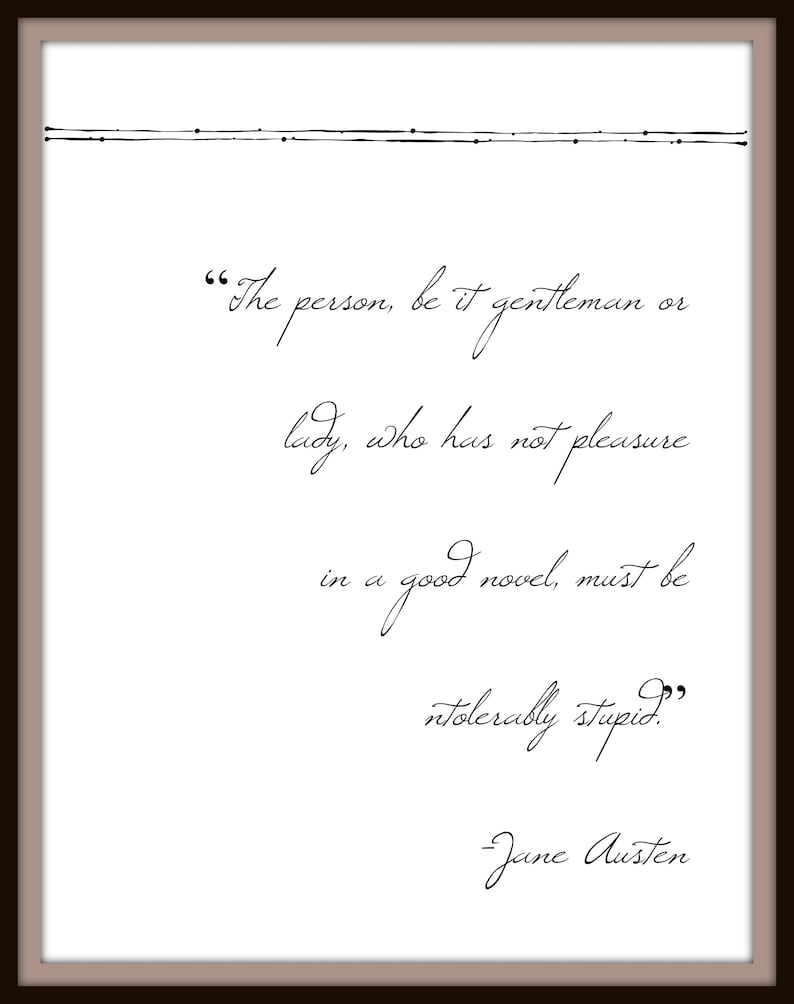 “The person, be it gentleman or
lady, who has not pleasure
in a good novel, must be
ntolerably stupid.”
-Jane Austen